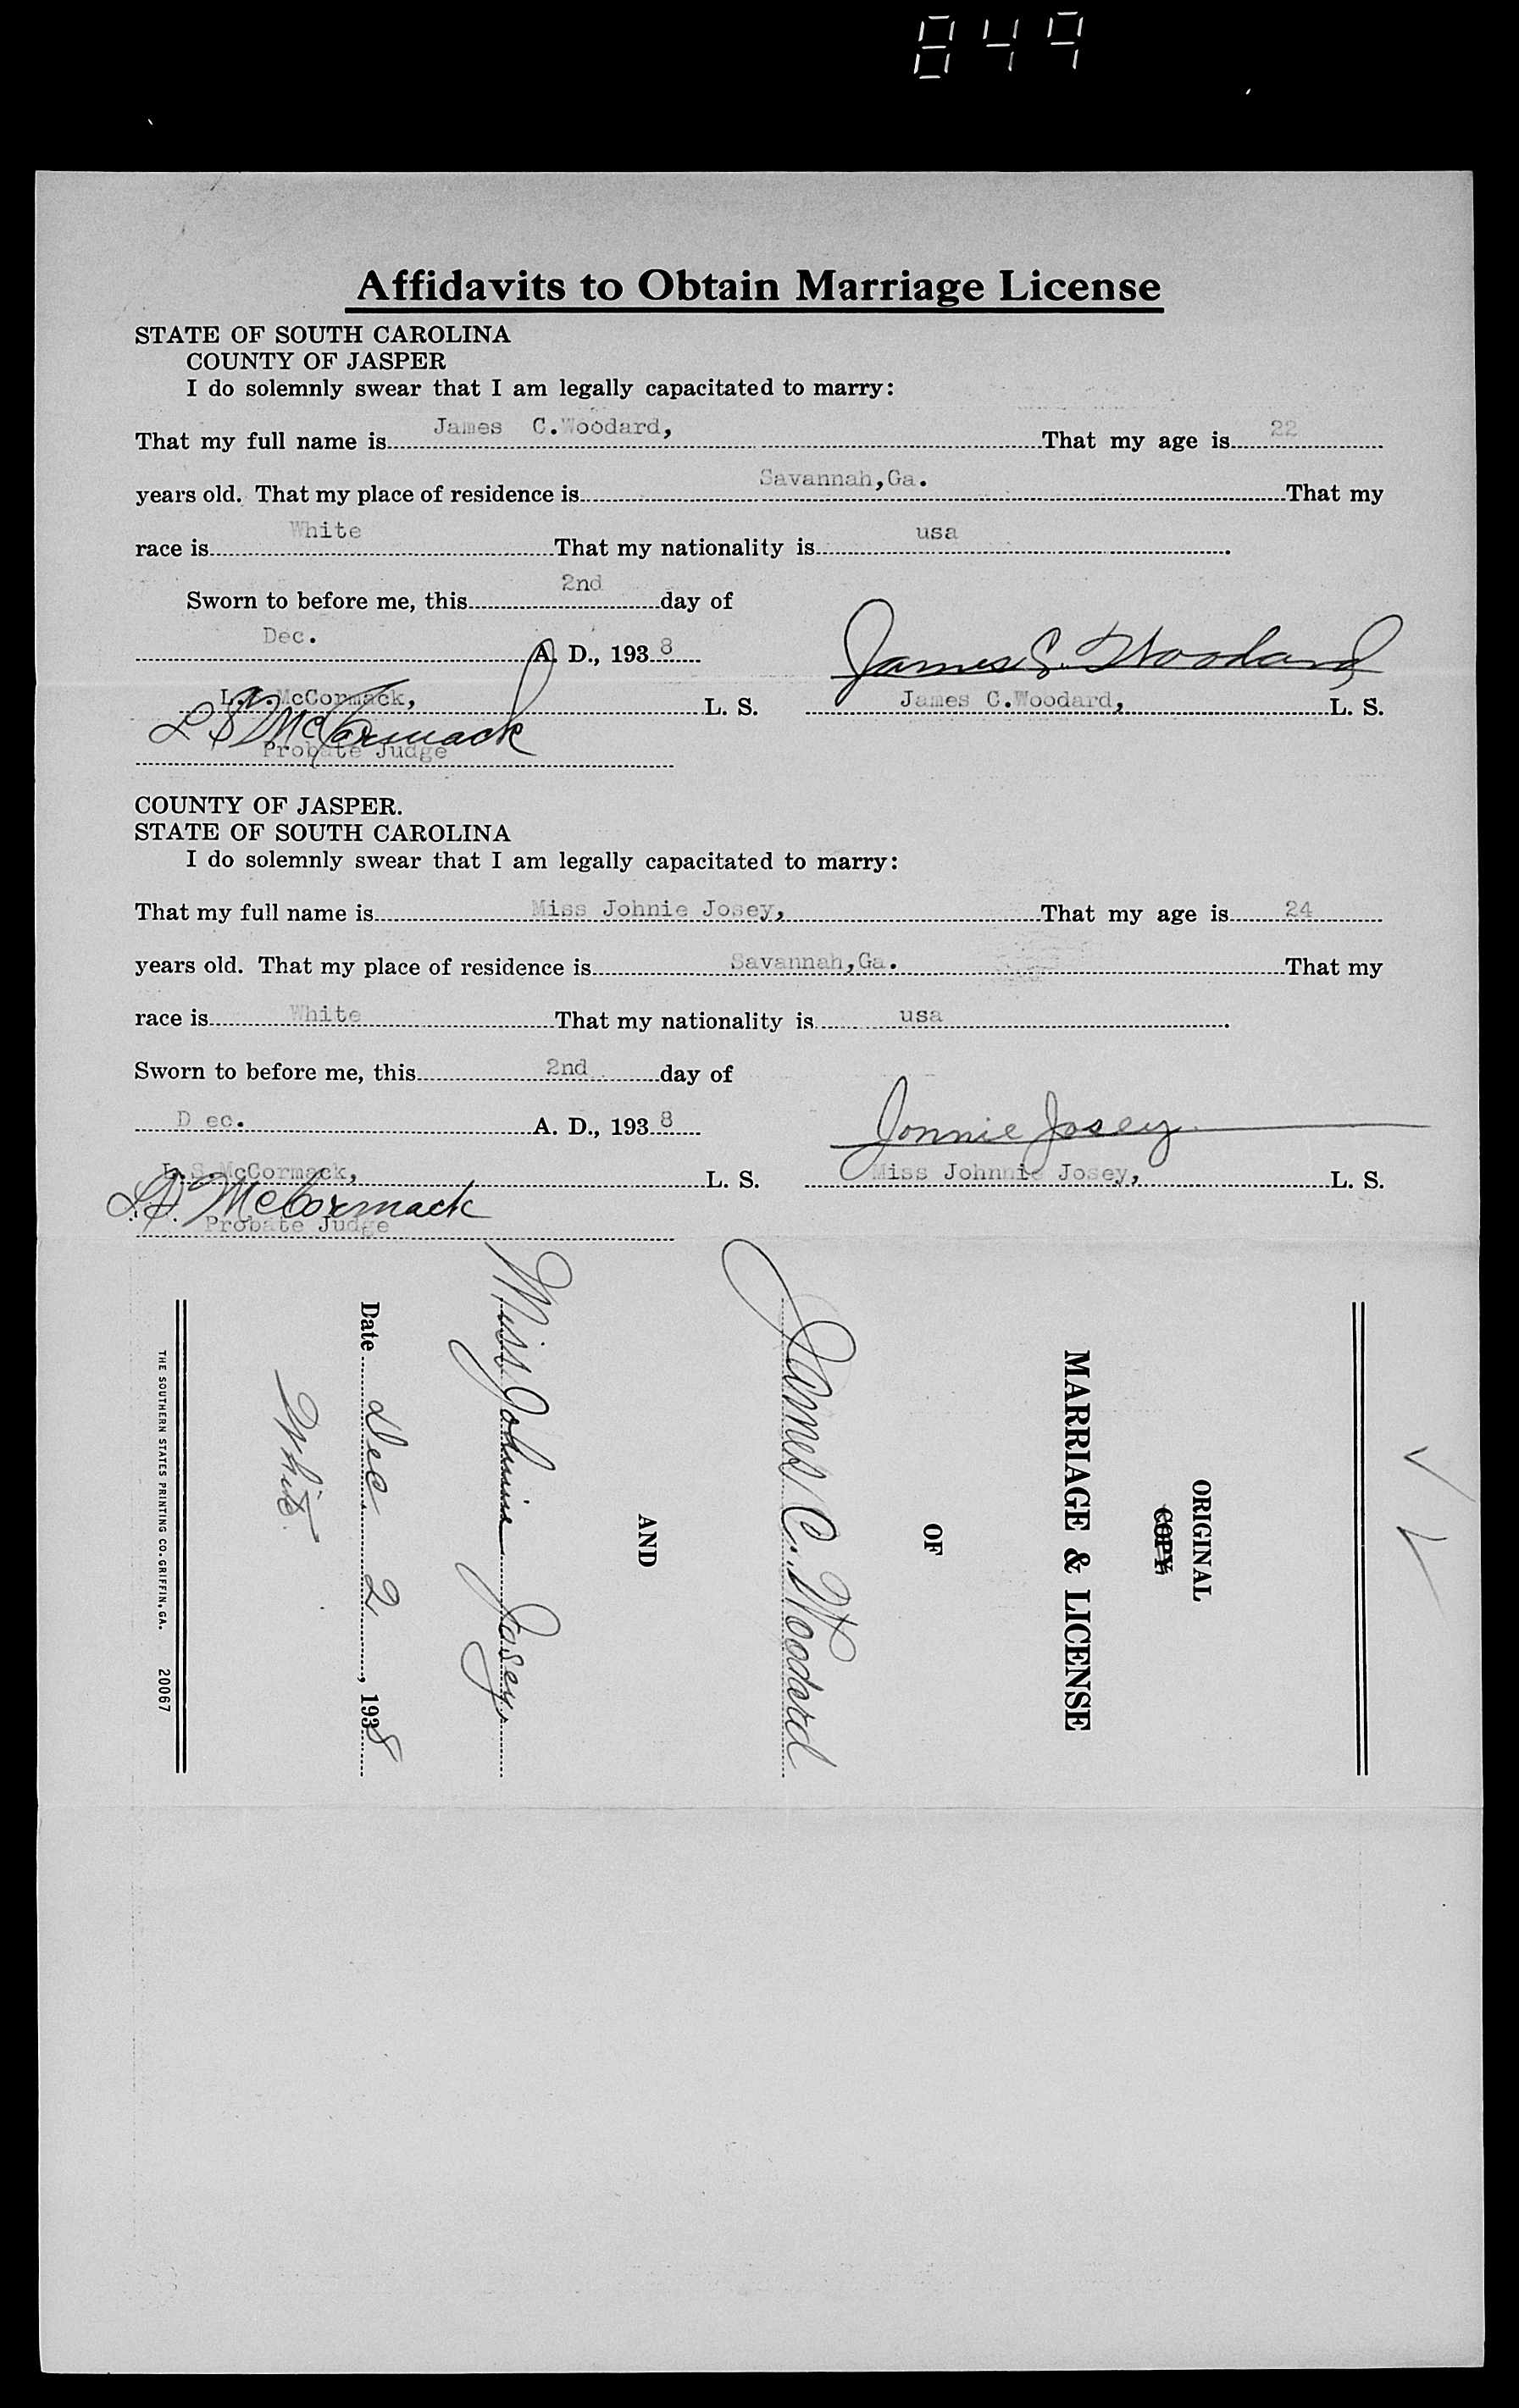 849
Affidavits to Obtain Marriage License
STATE OF SOUTH CAROLINA
COUNTY OF JASPER
I do solemnly swear that I am legally capacitated to marry:
That my full name is James C.Woodard, That my age is 22
years old. That my place of residence is Savannah,Ga. That my
race is White That my nationality is usa .
Sworn to before me, this 2nd day of
Dec. A. D., 1938
James C. Woodard
L.S. McCormack, L. S. James C.Woodard, L. S.
L S McCormack
Probate Judge
COUNTY OF JASPER.
STATE OF SOUTH CAROLINA
I do solemnly swear that I am legally capacitated to marry:
That my full name is Miss Johnie Josey, That my age is 24
years old. That my place of residence is Savannah,Ga. That my
race is White That my nationality is usa .
Sworn to before me, this 2nd day of
D ec. A. D., 1938
Jonnie Josey
L.S.McCormack, L. S. Miss Johnnie Josey, L. S.
L.S. McCormack
Probate Judge
ORIGINAL
COPY
MARRIAGE & LICENSE
OF
James C. Woodard
AND
Miss Johnnie Josey,
Date Dec 2, 1938
White
THE SOUTHERN STATES PRINTING CO. GRIFFIN, GA. 20067